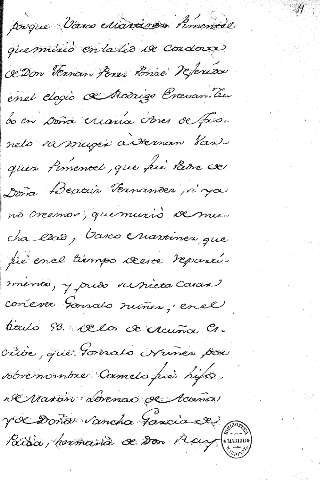 porque Vasco Martinez Pimentel
que murió en la lid de Cordova
de Don Fernan Peres Ponze referida
en el elogio de Rodrigo Estevan. Tu-
bo en Doña Maria Anes de For-
nelo su muger à Fernan Vas-
quez Pimentel, que fué Padre de
Doña Beatriz Fernandez, si ya
no creemos, que murió de mu-
cha edad, Vasco Martinez que
fué en el tiempo de este reparti-
miento, y pudo su nieta casar
con este Gonzalo nuñez; en el
titulo 50. de los de Acuña es-
crive, que Gonzalo Nuñez por
sobrenombre Camelo fué hijo
de Martin Lorenzo de Acuña
y de Doña Sancha Garcia de
Paiba, hermana de Don Ruy